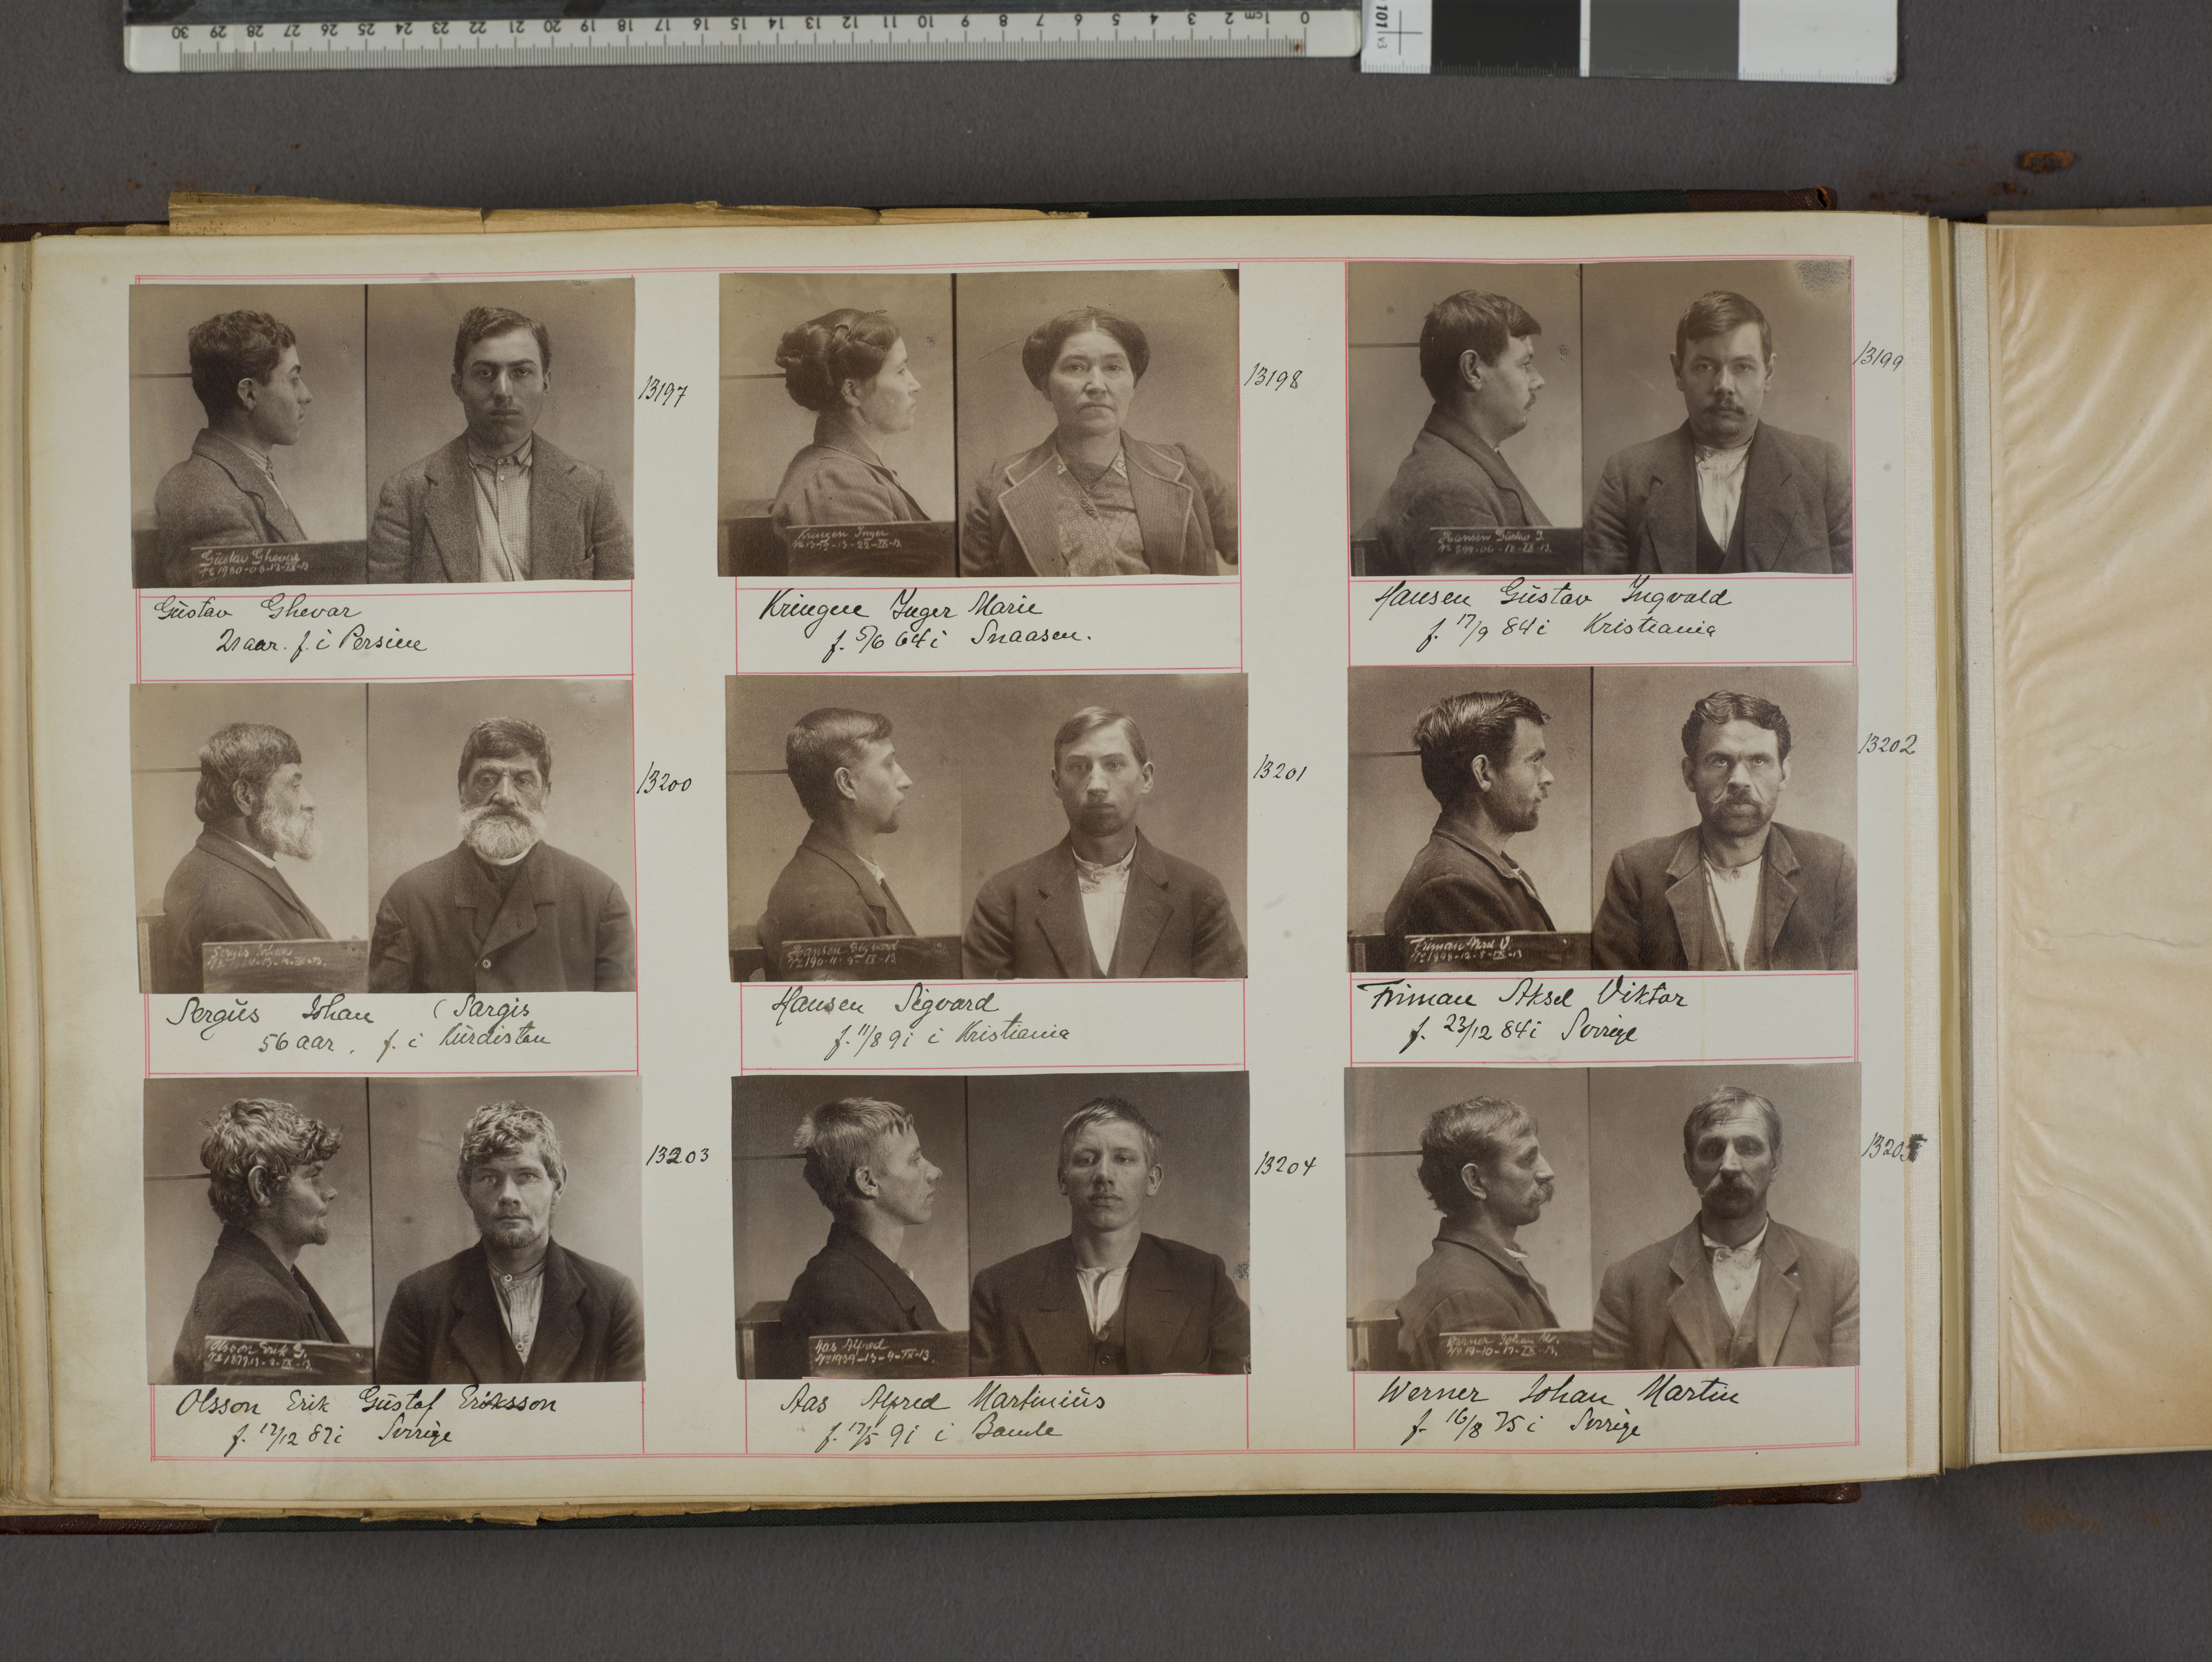 0 1cm 2 3 4 5 6 7 8 9 10 11 12 13 14 15 16 17 18 19 20 21 22 23 24 25 26 27 28 29 30
101 v3
13197
Gustav Ghevar
Nº 1980-08-13-IX-13
Güstav Ghevar
21 aar. f. i Persien
13198
Kringen Inger
22-IX-13.
Kringen Inger Marie
f. 5/6 64 i Snaasen.
13199
Hansen Gustav I.
Nº 299-06-18-IX-13.
Hansen Güstav Ingvald
f. 17/9 84 i Kristiania
13200
Sergis Johan
Sergüs Johan (Sargis
56 aar, f. i Kürdistan
13201
Hansen Sigvard
Nº 190-11-9-IX-13
Hansen Sigvard
f. 11/8 91 i Kristiania
13202
Friman Aksel V.
Nº 1898-12-5-IX-13
Friman Aksel Viktor
f. 23/12 84 i Sverige
13203
Olsson Erik G.
Nº 1877-13-2-IX-13.
Olsson Erik Güstaf Eriksson
f. 17/12 87 i Sverige
13204
Aas Alfred
Nº 1939-13-9-IX-13.
Aas Alfred Martiniüs
f. 17/5 91 i Bamle
13205
Werner Johan M.
Nº 19-10-17-IX-13.
Werner Johan Martin
f. 16/8 75 i Sverige